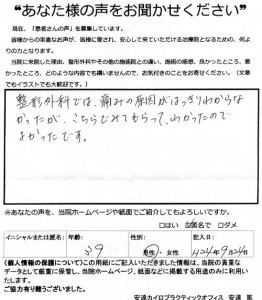 “あなた様の声をお聞かせください”
現在、「患者さんの声」を募集しています。
皆様からの率直なお声が、皆様に愛され、安心して来ていただける治療院となるための、何よりの力となります。
当院に来院した理由、整形外科やその他の施術院との違い、施術の感想、良かったところ、悪かったところ、どのような内容でも構いませんので、お気付きのことをお寄せください。（文章でもイラストでも大歓迎です。）
整形外科では、痛みの原因がはっきりわからな
かったが、こちらでみてもらって、わかったので
よかったです。
※あなたの声を、当院ホームページや紙面でご紹介してもよろしいですか。
□はい ☑匿名で □ダメ
イニシャルまたは匿名：
年齢：
39
男性・女性
〈個人情報の保護について〉この用紙にご記入いただきました情報は、当院の貴重な
データとして厳重に保管し、当院ホームページ、紙面などに掲載する用途のみに利用い
たします。
ご協力有り難うございました。
安達カイロプラクティックオフィス 安達